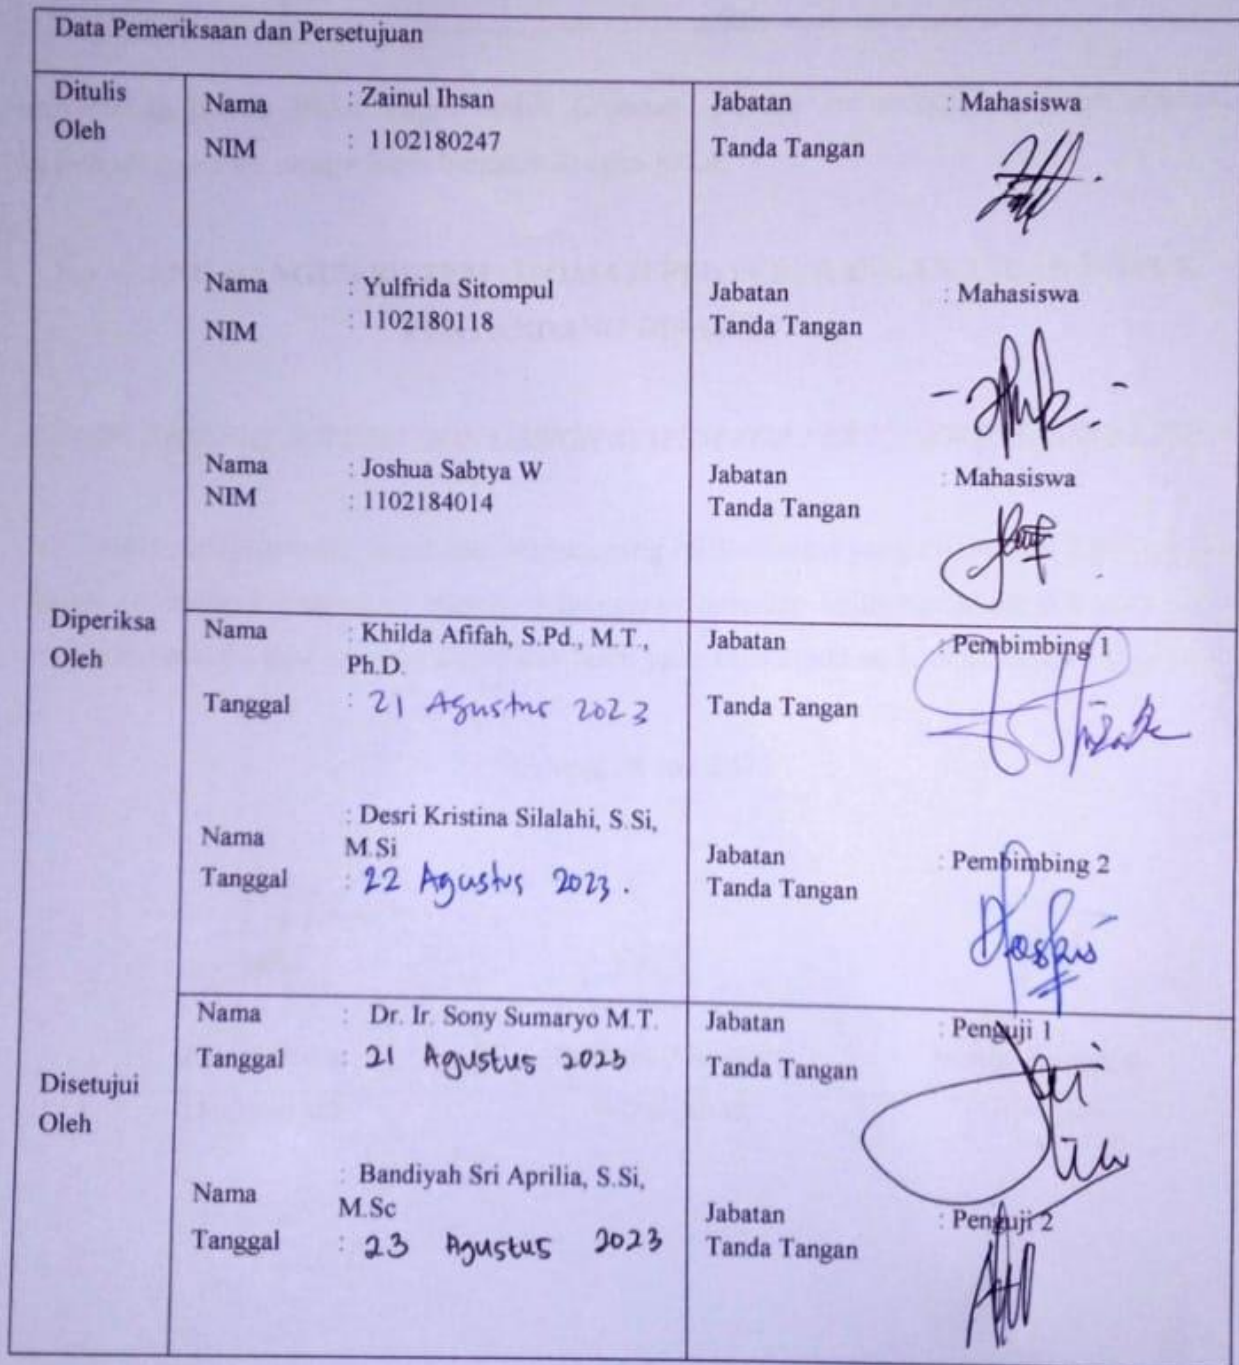 Data Pemeriksaan dan Persetujuan
Ditulis Oleh
Nama : Zainul Ihsan
NIM : 1102180247
Jabatan : Mahasiswa
Tanda Tangan
Nama : Yulfrida Sitompul
NIM : 1102180118
Jabatan : Mahasiswa
Tanda Tangan
Nama : Joshua Sabtya W
NIM : 1102184014
Jabatan : Mahasiswa
Tanda Tangan
Diperiksa Oleh
Nama : Khilda Afifah, S.Pd., M.T.,
Ph.D.
Tanggal : 21 Agustus 2023
Jabatan : Pembimbing 1
Tanda Tangan
Nama : Desri Kristina Silalahi, S.Si,
M.Si
Tanggal : 22 Agustus 2023.
Jabatan : Pembimbing 2
Tanda Tangan
Disetujui Oleh
Nama : Dr. Ir. Sony Sumaryo M.T.
Tanggal : 21 Agustus 2023
Jabatan : Penguji 1
Tanda Tangan
Nama : Bandiyah Sri Aprilia, S.Si,
M.Sc
Tanggal : 23 Agustus 2023
Jabatan : Penguji 2
Tanda Tangan